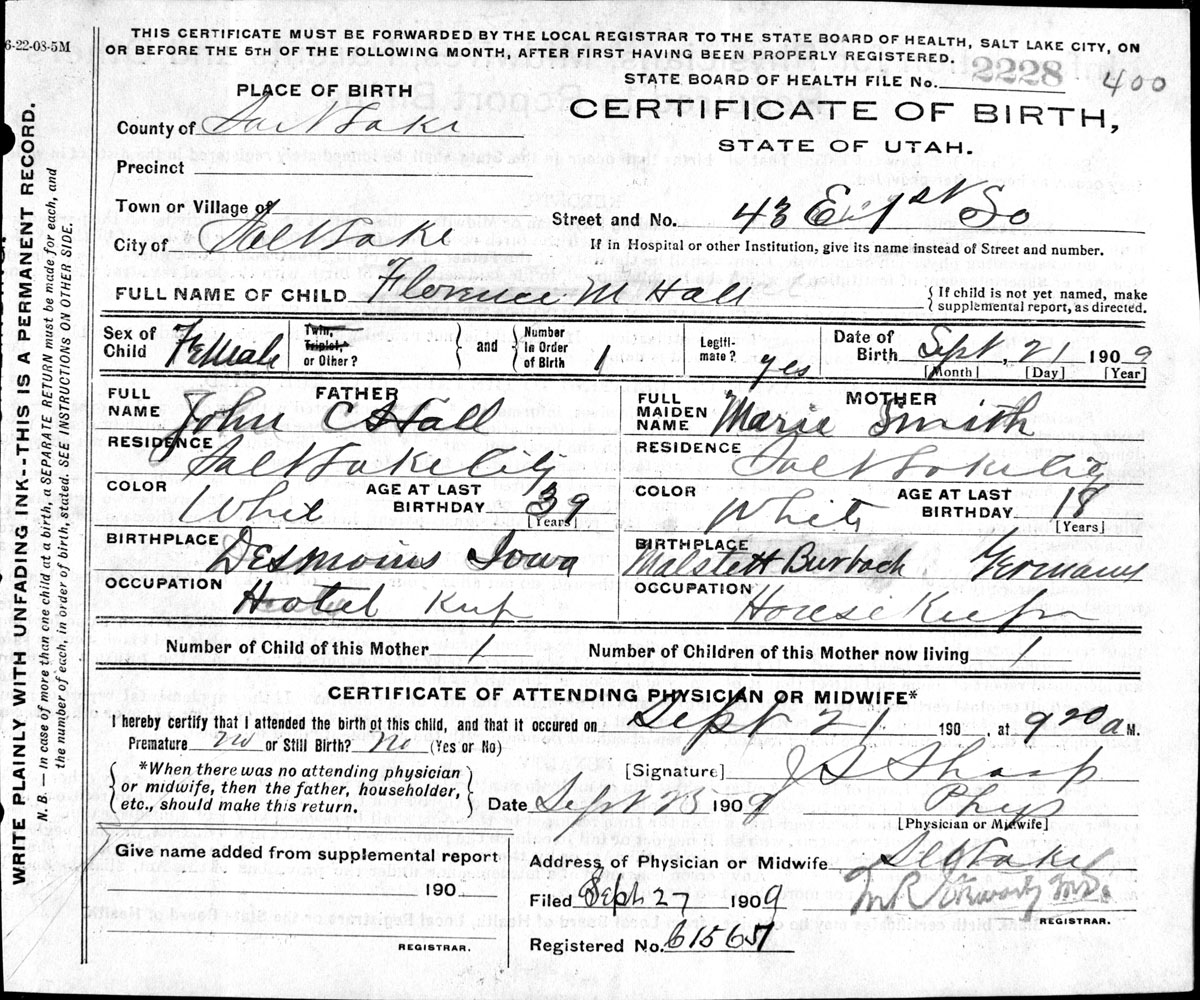 6-22-08-5M
WRITE PLAINLY WITH UNFADING INK--THIS IS A PERMANENT RECORD.
N. B. — In case of more than one child at a birth, a SEPARATE RETURN must be made for each, and
the number of each, in order of birth, stated. SEE INSTRUCTIONS ON OTHER SIDE.
THIS CERTIFICATE MUST BE FORWARDED BY THE LOCAL REGISTRAR TO THE STATE BOARD OF HEALTH, SALT LAKE CITY, ON
OR BEFORE THE 5TH OF THE FOLLOWING MONTH, AFTER FIRST HAVING BEEN PROPERLY REGISTERED.
STATE BOARD OF HEALTH FILE No. 2228 400
PLACE OF BIRTH
CERTIFICATE OF BIRTH,
STATE OF UTAH.
County of Salt Lake
Precinct
Town or Village of
Street and No. 43 E 1st So
City of Salt Lake
If in Hospital or other Institution, give its name instead of Street and number.
FULL NAME OF CHILD Florence M Hall
{If child is not yet named, make
supplemental report, as directed.
Sex of Child Female
Twin, Triplet, or Other?
and
Number in Order of Birth 1
Legiti- mate? yes
Date of Birth Sept, 21 1909
[Month] [Day] [Year]
FATHER
FULL NAME John C Hall
MOTHER
FULL MAIDEN NAME Marie Smith
RESIDENCE Salt Lake City
RESIDENCE Salt Lake City
COLOR White AGE AT LAST BIRTHDAY 39 [Years]
COLOR White AGE AT LAST BIRTHDAY 18 [Years]
BIRTHPLACE Desmoins Iowa
BIRTHPLACE Malstett Burbach Germany
OCCUPATION Hotel Kup
OCCUPATION House Kup
Number of Child of this Mother 1
Number of Children of this Mother now living 1
CERTIFICATE OF ATTENDING PHYSICIAN OR MIDWIFE*
I hereby certify that I attended the birth of this child, and that it occured on Sept 21 190 , at 9 20 a M.
Premature no or Still Birth? no (Yes or No)
*When there was no attending physician
or midwife, then the father, householder,
etc., should make this return.
[Signature] J S Sharp
Date Sept 23 1909 Phys
[Physician or Midwife]
Give name added from supplemental report
190
REGISTRAR.
Address of Physician or Midwife Salt Lake
Filed Sept 27 1909
REGISTRAR.
Registered No.